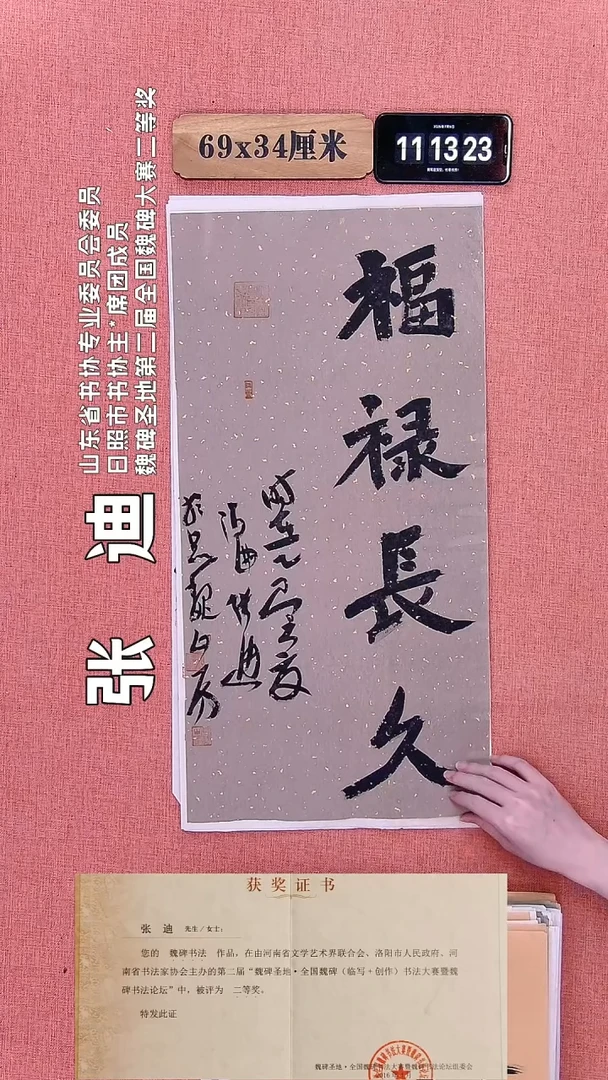 69x34厘米
11 13 23
山东省书协专业委员会委员
日照市书协主*席团成员
魏碑圣地第二届全国魏碑大赛二等奖
张 迪
福禄長久
获奖证书
张 迪 先生/女士:
您的 魏碑书法 作品,在由河南省文学艺术界联合会、洛阳市人民政府、河
南省书法家协会主办的第二届“魏碑圣地·全国魏碑(临写+创作)书法大赛暨魏
碑书法论坛”中,被评为 二等奖。
特发此证
魏碑圣地·全国魏碑书法大赛暨魏碑书法论坛组委会